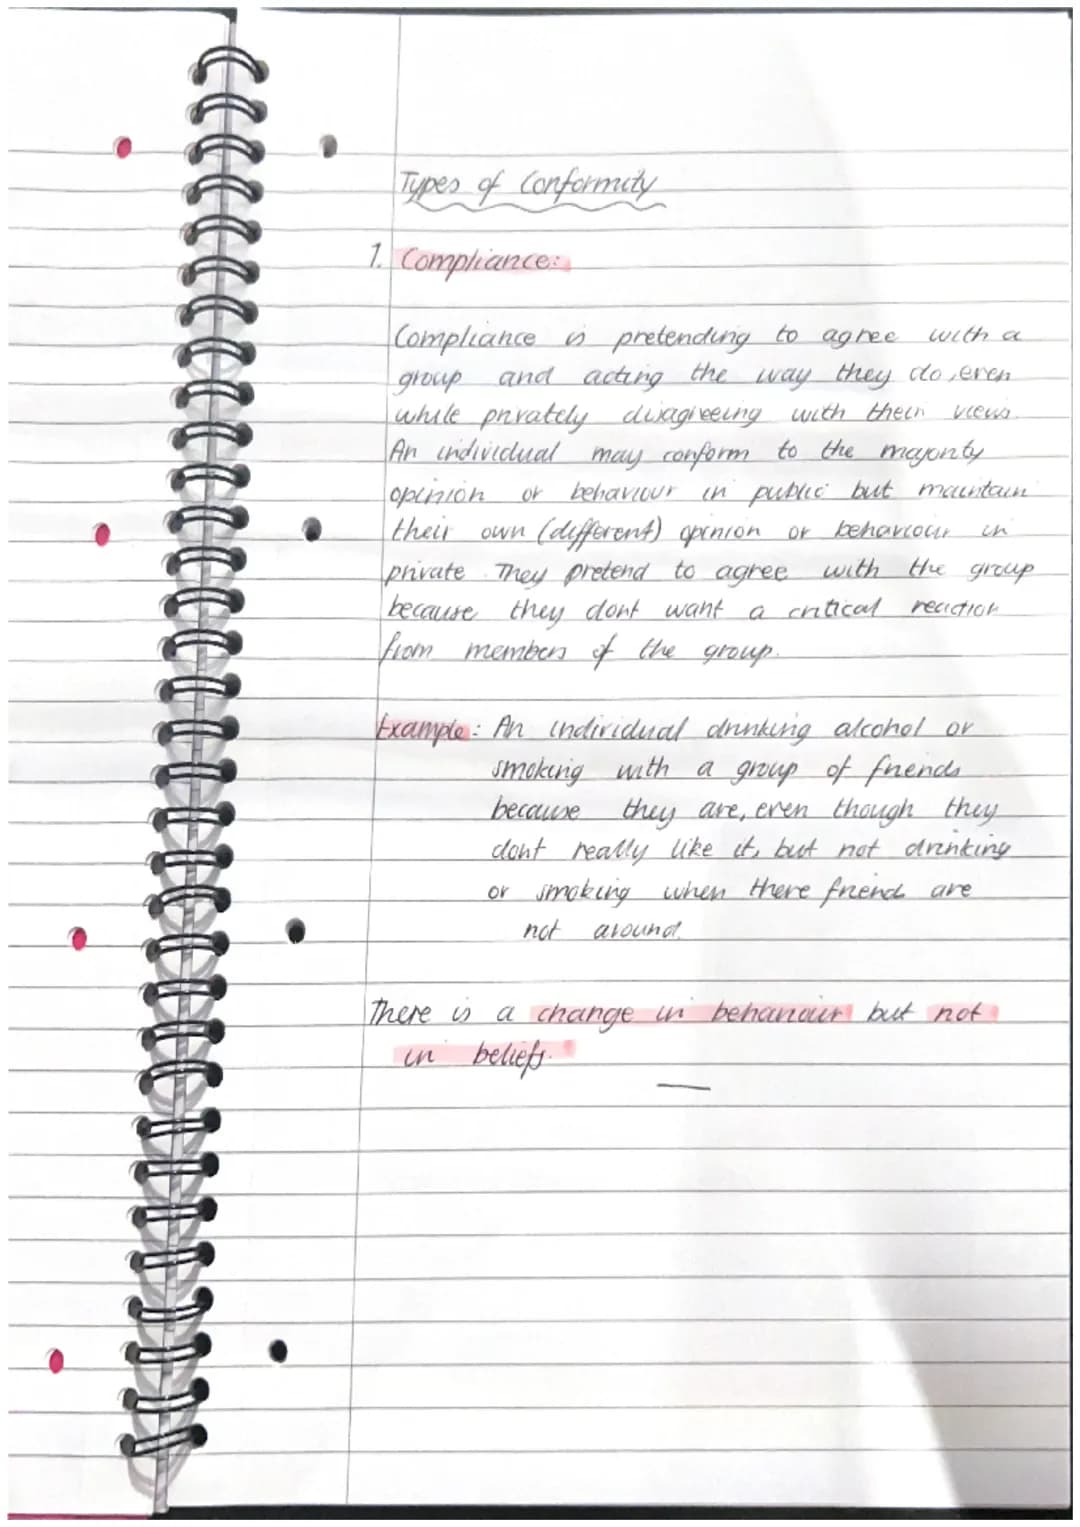 Types of Conformity
1. Compliance:
Compliance is pretending to agree with a
group and acting the way they do, even
while privately disagreeing with their views.
An individual may conform to the majority
opinion or behaviour in public but maintain
their own (different) opinion or behaviour in
private. They pretend to agree with the group
because they dont want a critical reaction
from members of the group.
Example: An individual drinking alcohol or
smoking with a group of friends
because they are, even though they
dont really like it, but not drinking
or smoking when there friend are
not around.
There is a change in behaviour but not
in beliefs.